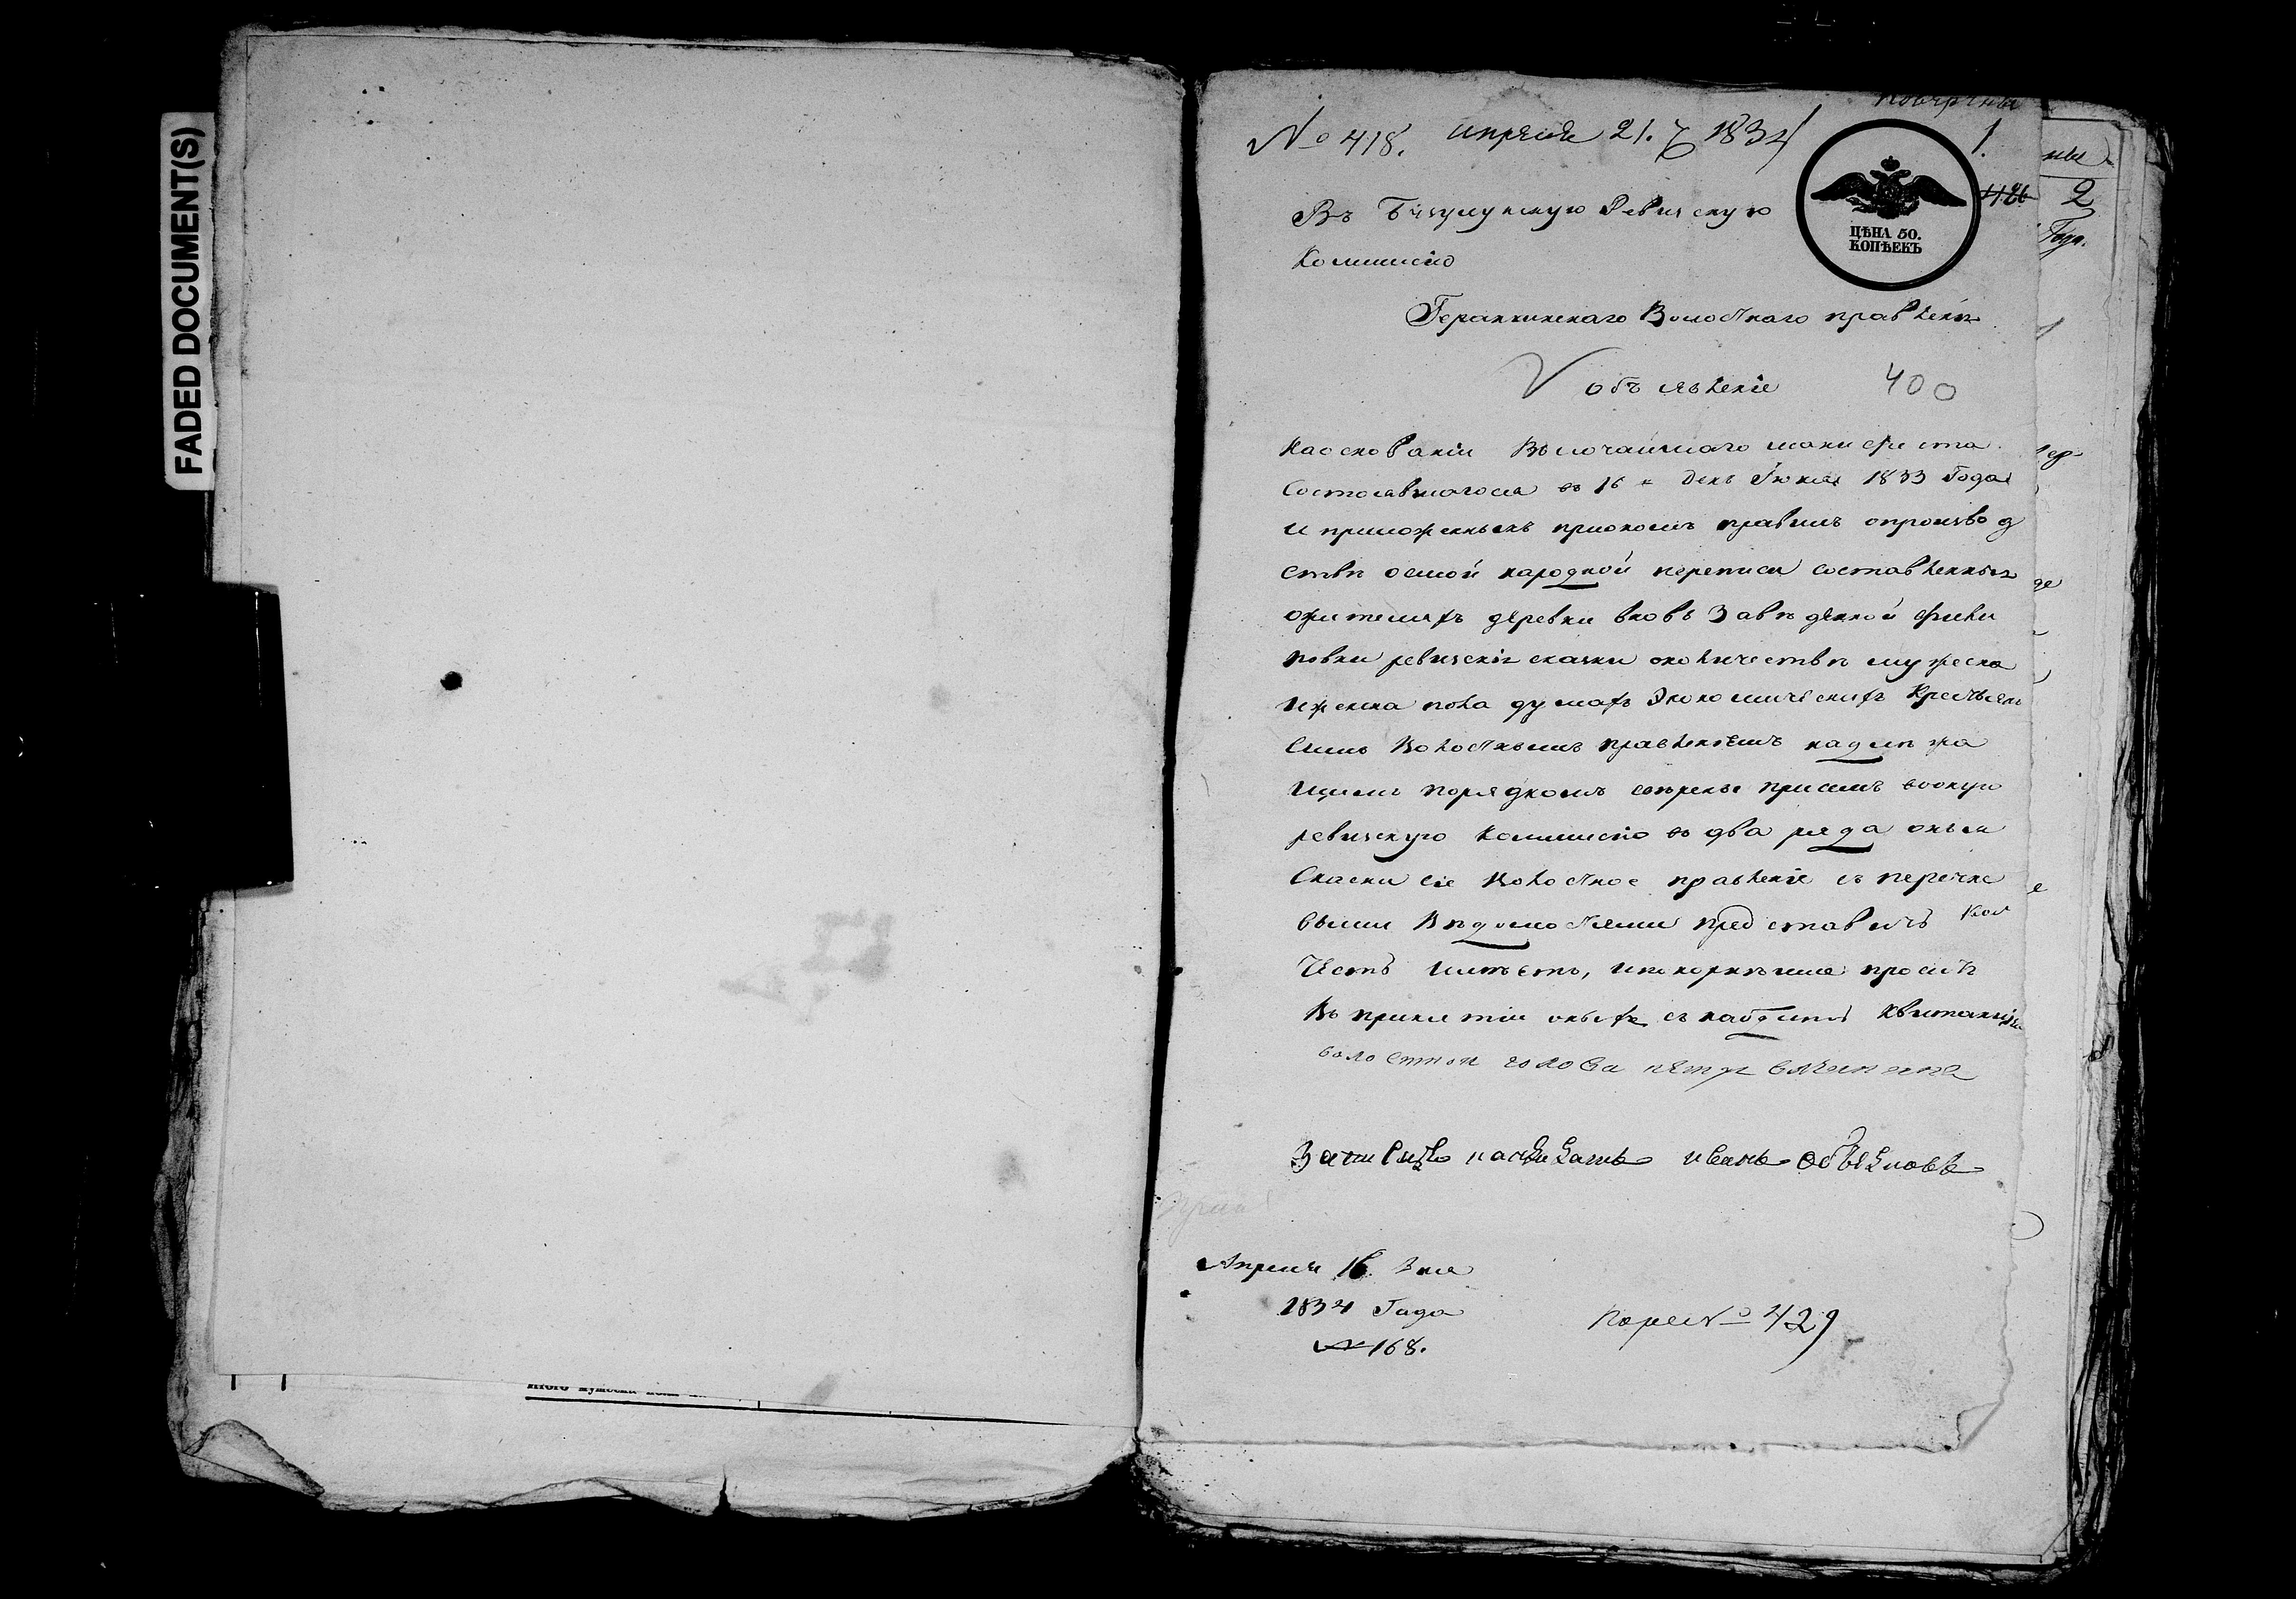 FADED DOCUMENT(S)
№ 418. апреля 21. 1834
1.
Въ Бугульминскую Ревискую
ЦѢНА 50.
КОПѢЕКЪ
2
Года.
Комисию
Геранкинскаго Волостнаго правленія
объявленіе 400
На основаніи Высочайшаго манифеста
состоявшагося въ 16 день Іюня 1833 Года
и приложенныхъ приономъ правилъ опроизвод
ствѣ осмой народной переписи составленныя
ожителяхъ деревни вновь Заведенной Фили
повки ревизскія сказки околичествѣ мужеска
иженска пола душахъ Экономическихъ Крестьянъ
симъ Волостнымъ правленіемъ надлежа
щимъ порядкомъ присемъ вооную
ревискую Комисію въ два ряда оныя
Скаски сіе Волостное правленіе съ перечне
выми Вѣдомостями представить
Честь имѣетъ, ипокорнѣише проситъ
Въ принятіи оныхъ снабдить Квитанціею
волостной голова петр
Засидѣтель иванъ
Апреля 16 дня
1834 Года
№ 168.
№ 429